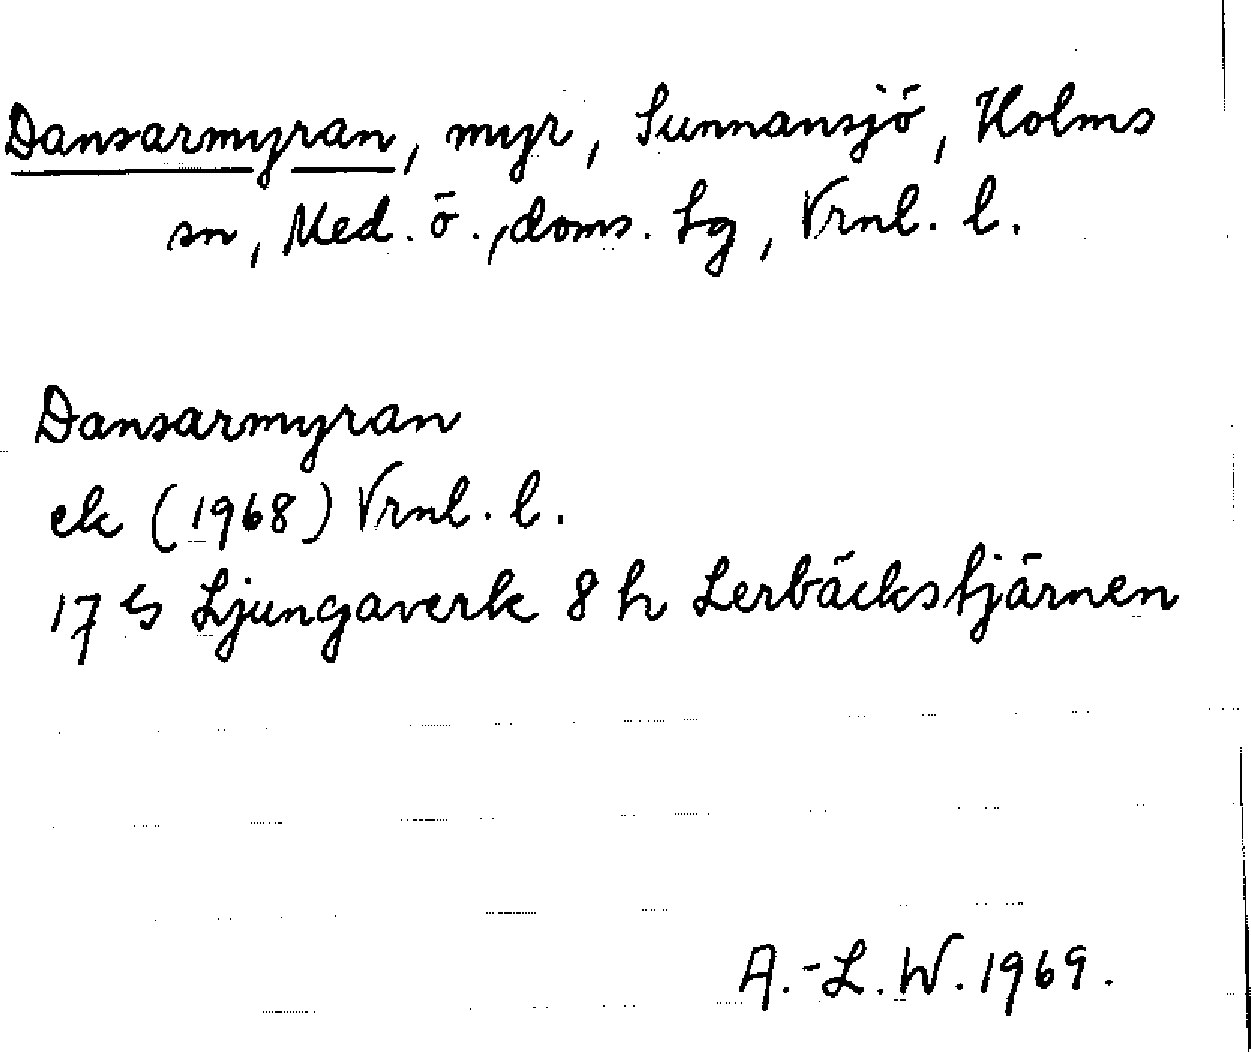 Dansarmyran, myr, Sunnansjö, Holms
sn, Med. ö., doms. Lg, Vrnl. l.
Dansarmyran
ek (1968) Vrnl. l.
17 G Ljungaverk 8 h Lerbäckstjärnen
A.-L. W. 1969.